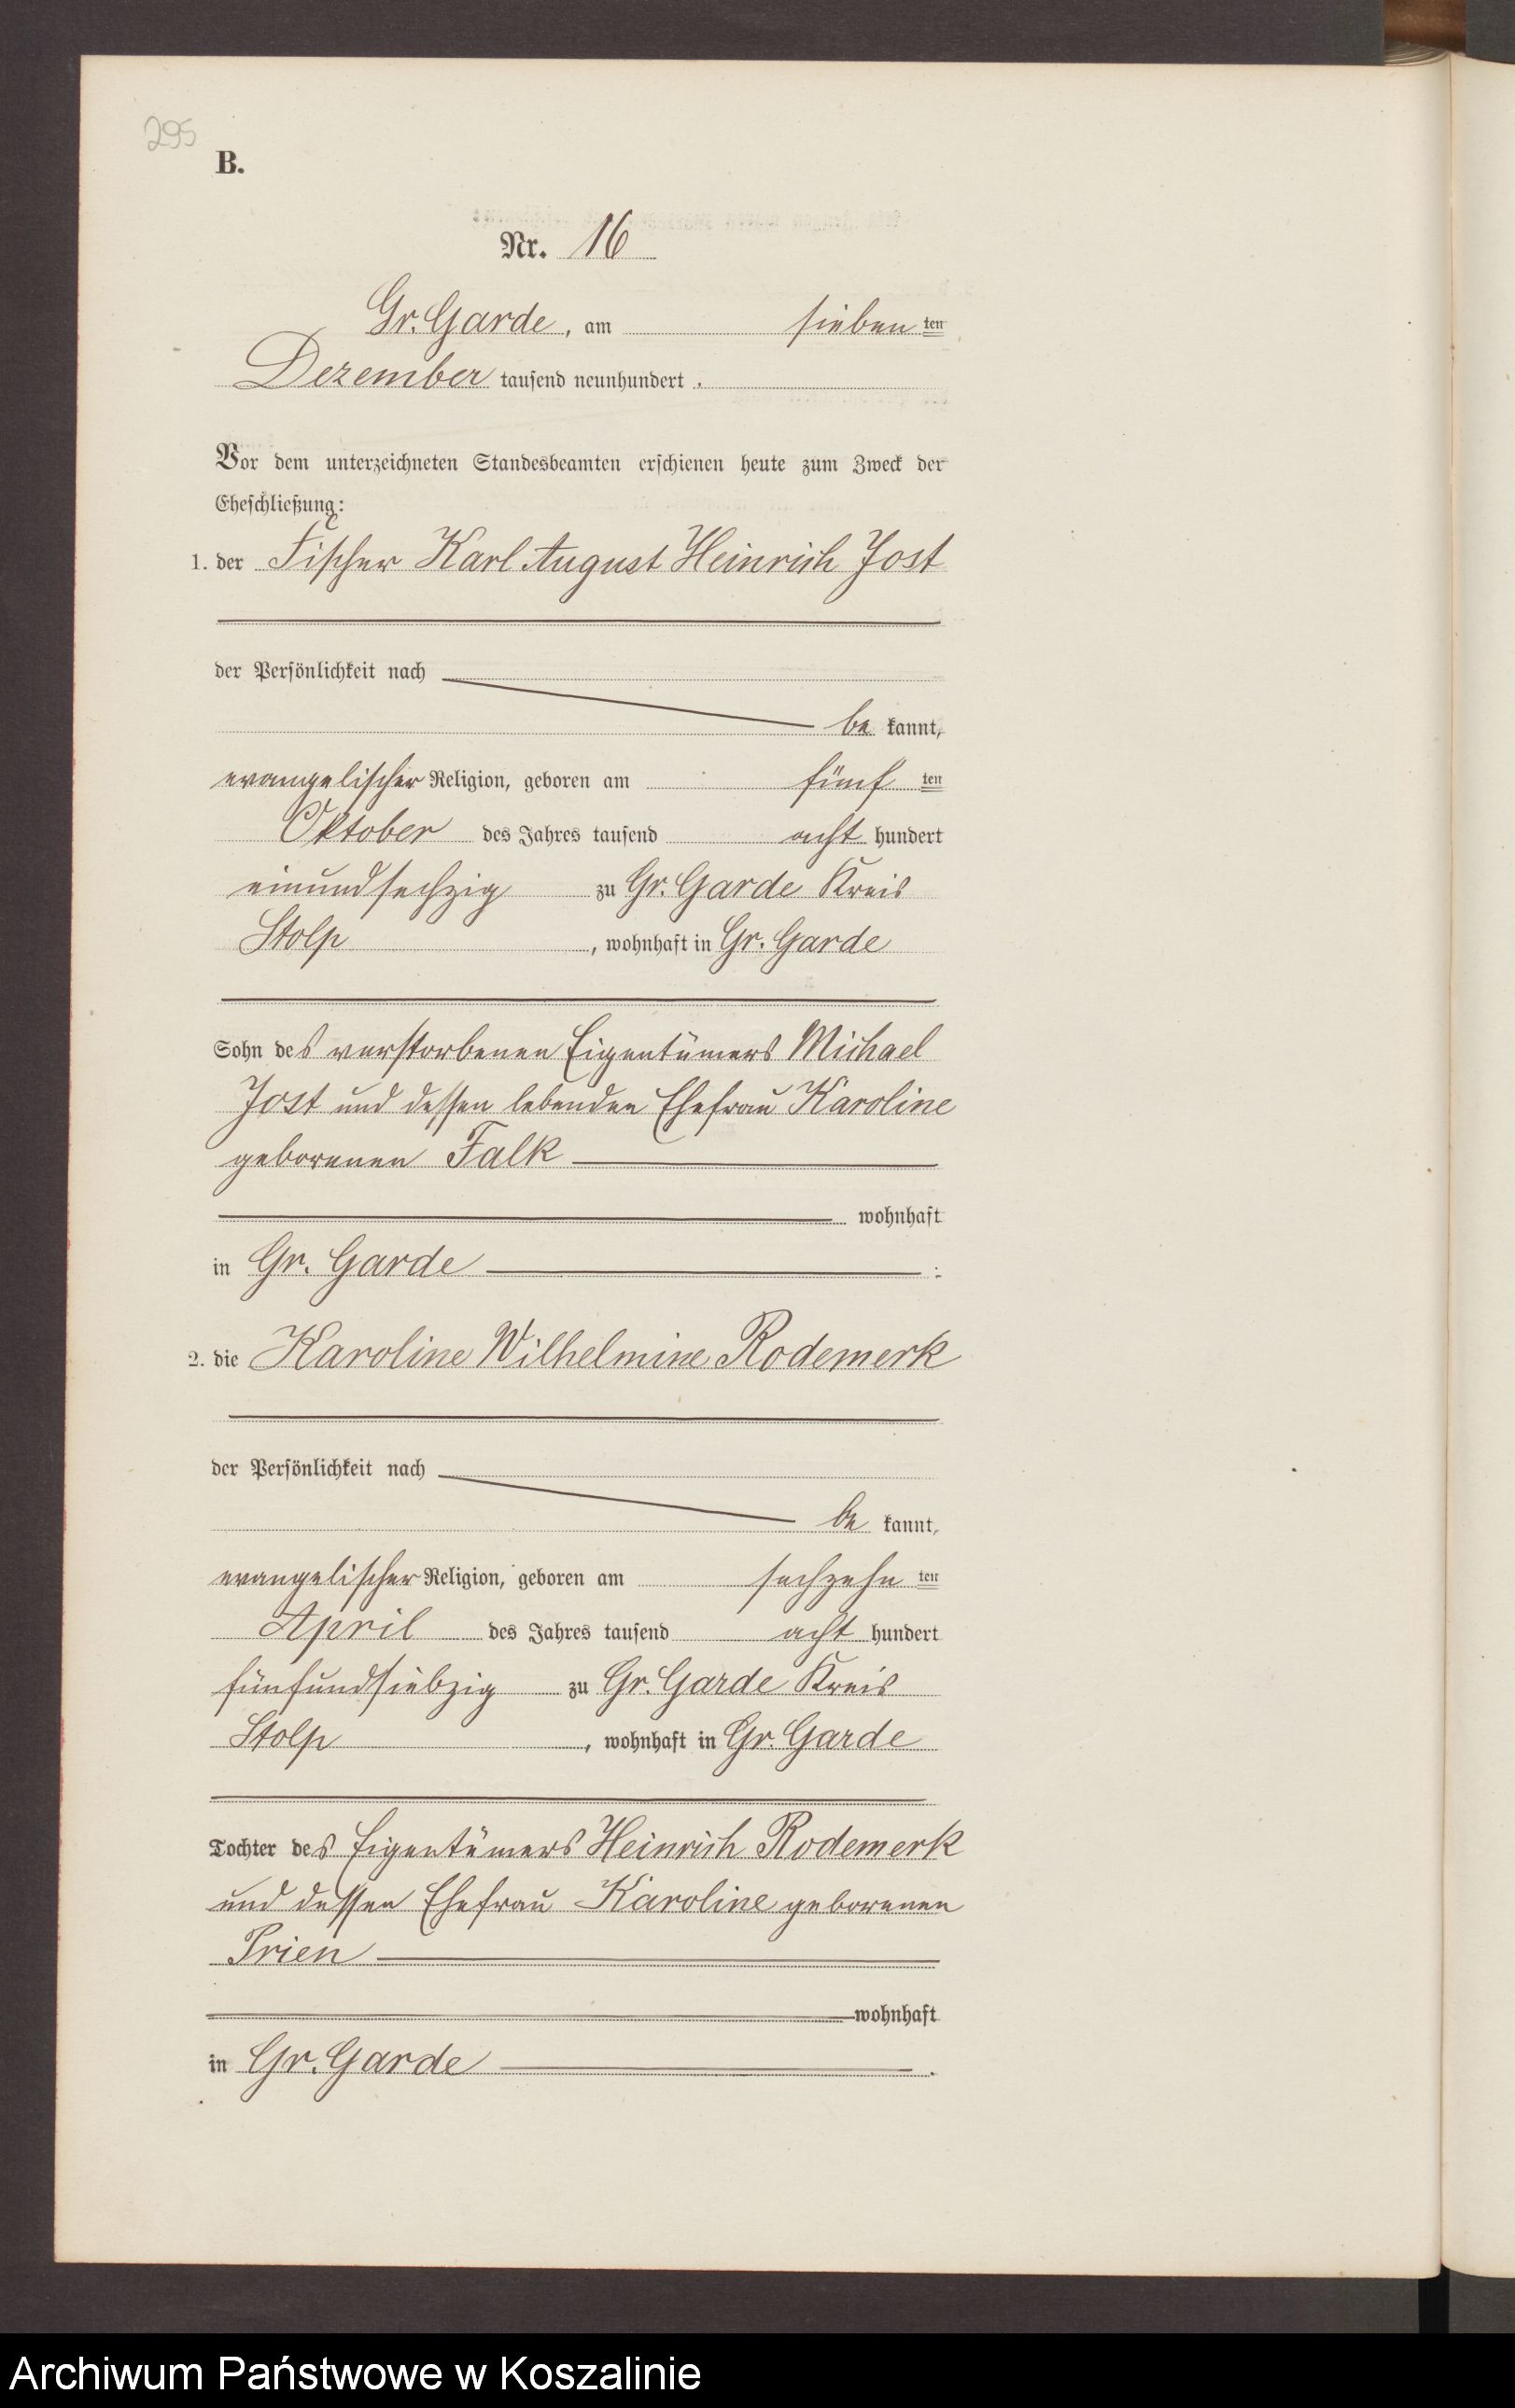 295
B.
Nr. 16
Gr. Garde, am sieben ten
Dezember tausend neunhundert .
Vor dem unterzeichneten Standesbeamten erschienen heute zum Zweck der
Eheschließung:
1. der Fischer Karl August Heinrich Jost
der Persönlichkeit nach
be kannt,
evangelischer Religion, geboren am fünf ten
Oktober des Jahres tausend acht hundert
einundsechzig zu Gr. Garde Kreis
Stolp , wohnhaft in Gr. Garde
Sohn des verstorbenen Eigentümers Michael
Jost und dessen lebenden Ehefrau Karoline
geborenen Falk
wohnhaft
in Gr. Garde :
2. die Karoline Wilhelmine Rodemerk
der Persönlichkeit nach
be kannt,
evangelischer Religion, geboren am sechzehn ten
April des Jahres tausend acht hundert
fünfundsiebzig zu Gr. Garde Kreis
Stolp , wohnhaft in Gr. Garde
Tochter des Eigentümers Heinrich Rodemerk
und dessen Ehefrau Karoline geborenen
Prien
wohnhaft
in Gr. Garde .
Archiwum Państwowe w Koszalinie